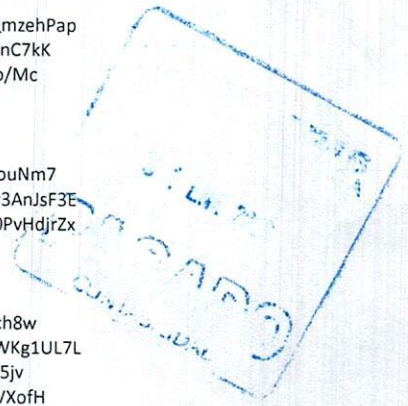 mzehPap
nC7kK
o/Mc
ouNm7
3AnJsF3E
0PvHdjrZx
PAGADO
ch8w
WKg1UL7L
5jv
VXofH